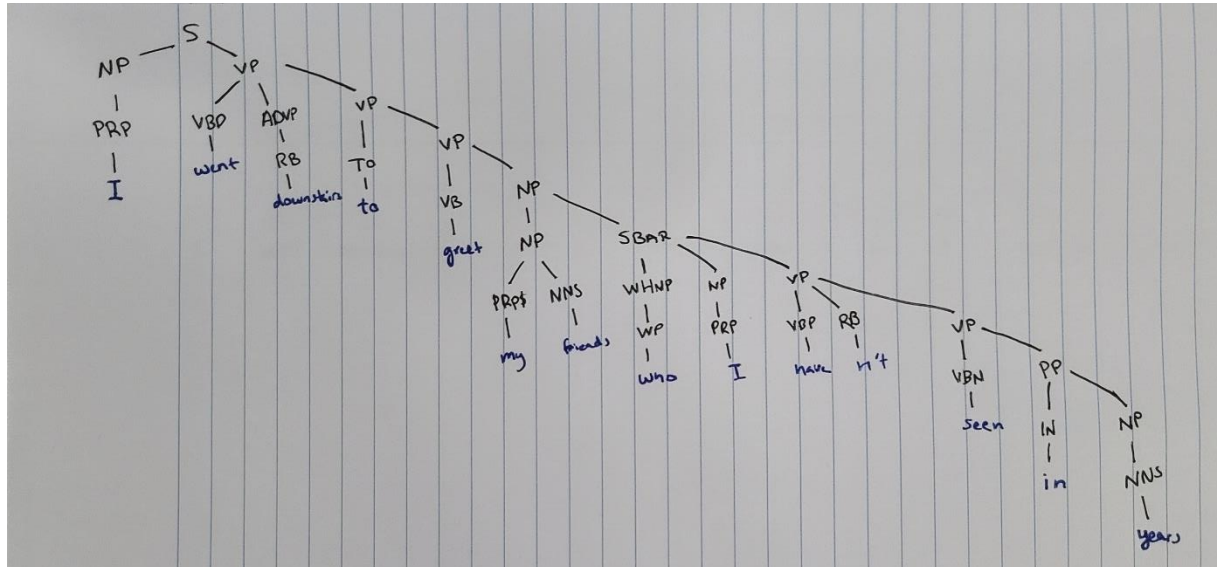 S
NP VP
PRP VBD ADVP VP
I went RB TO VP
downstairs to VB NP
greet NP SBAR
PRP$ NNS WHNP NP VP
my friends WP PRP VBP RB VP
who I have n't VBN PP
seen IN NP
in NNS
years